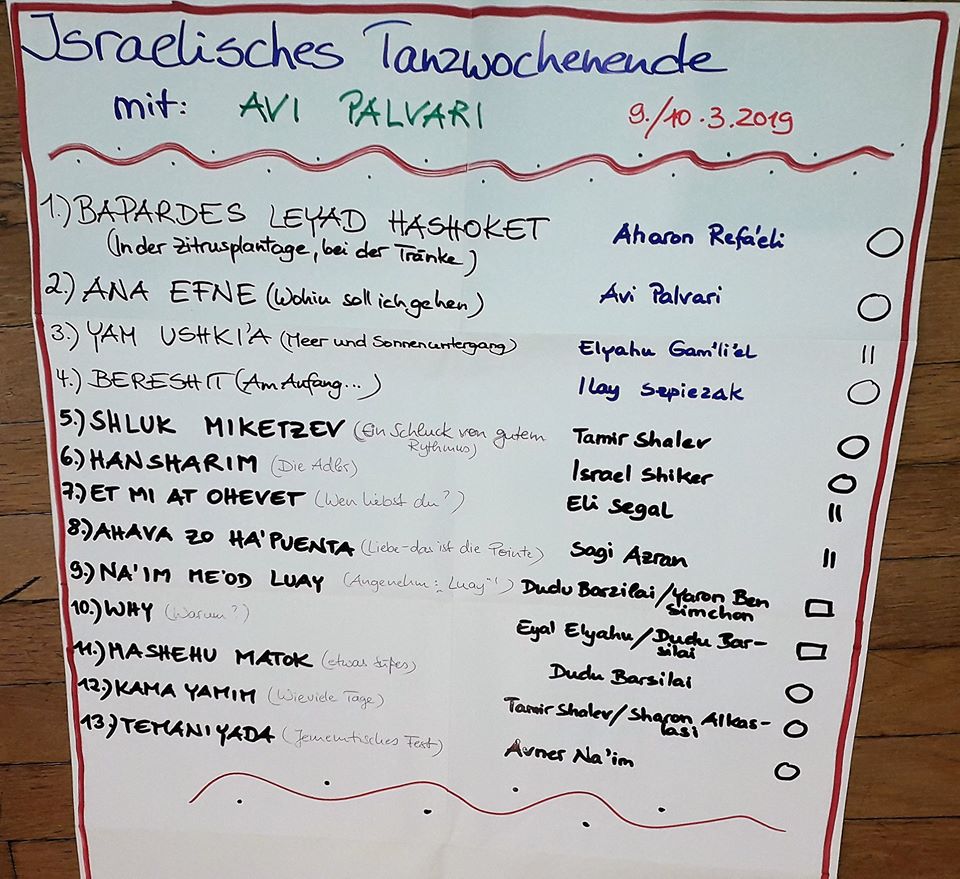 Israelisches Tanzwochenende
mit: AVI PALVARI 9./10.3.2019
1.) BAPARDES LEYAD HASHOKET Aharon Refa'eli
(In der Zitrusplantage, bei der Tränke)
2.) ANA EFNE (Wohin soll ich gehen) Avi Palvari
3.) YAM USHKI'A (Meer und Sonnenuntergang) Elyahu Gam'li'el
4.) BERESHIT (Am Anfang...) Ilay Szpiezak
5.) SHLUK MIKETZEV (Ein Schluck von gutem Tamir Shalev
Rythmus)
6.) HANSHARIM (Die Adler) Israel Shiker
7.) ET MI AT OHEVET (Wen liebst du?) Eli Segal
8.) AHAVA ZO HA'PUENTA (Liebe-das ist die Pointe) Sagi Azran
9.) NA'IM ME'OD LUAY (Angenehm: "Luay") Dudu Barzilai/Yaron Ben
Simchon
10.) WHY (Warum?) Eyal Elyahu/Dudu Bar-
silai
11.) MASHEHU MATOK (etwas süßes) Dudu Barsilai
12.) KAMA YAMIM (Wieviele Tage) Tamir Shalev/Sharon Alkas-
lasi
13.) TEMANIYADA (Jemenitisches Fest) Avner Na'im